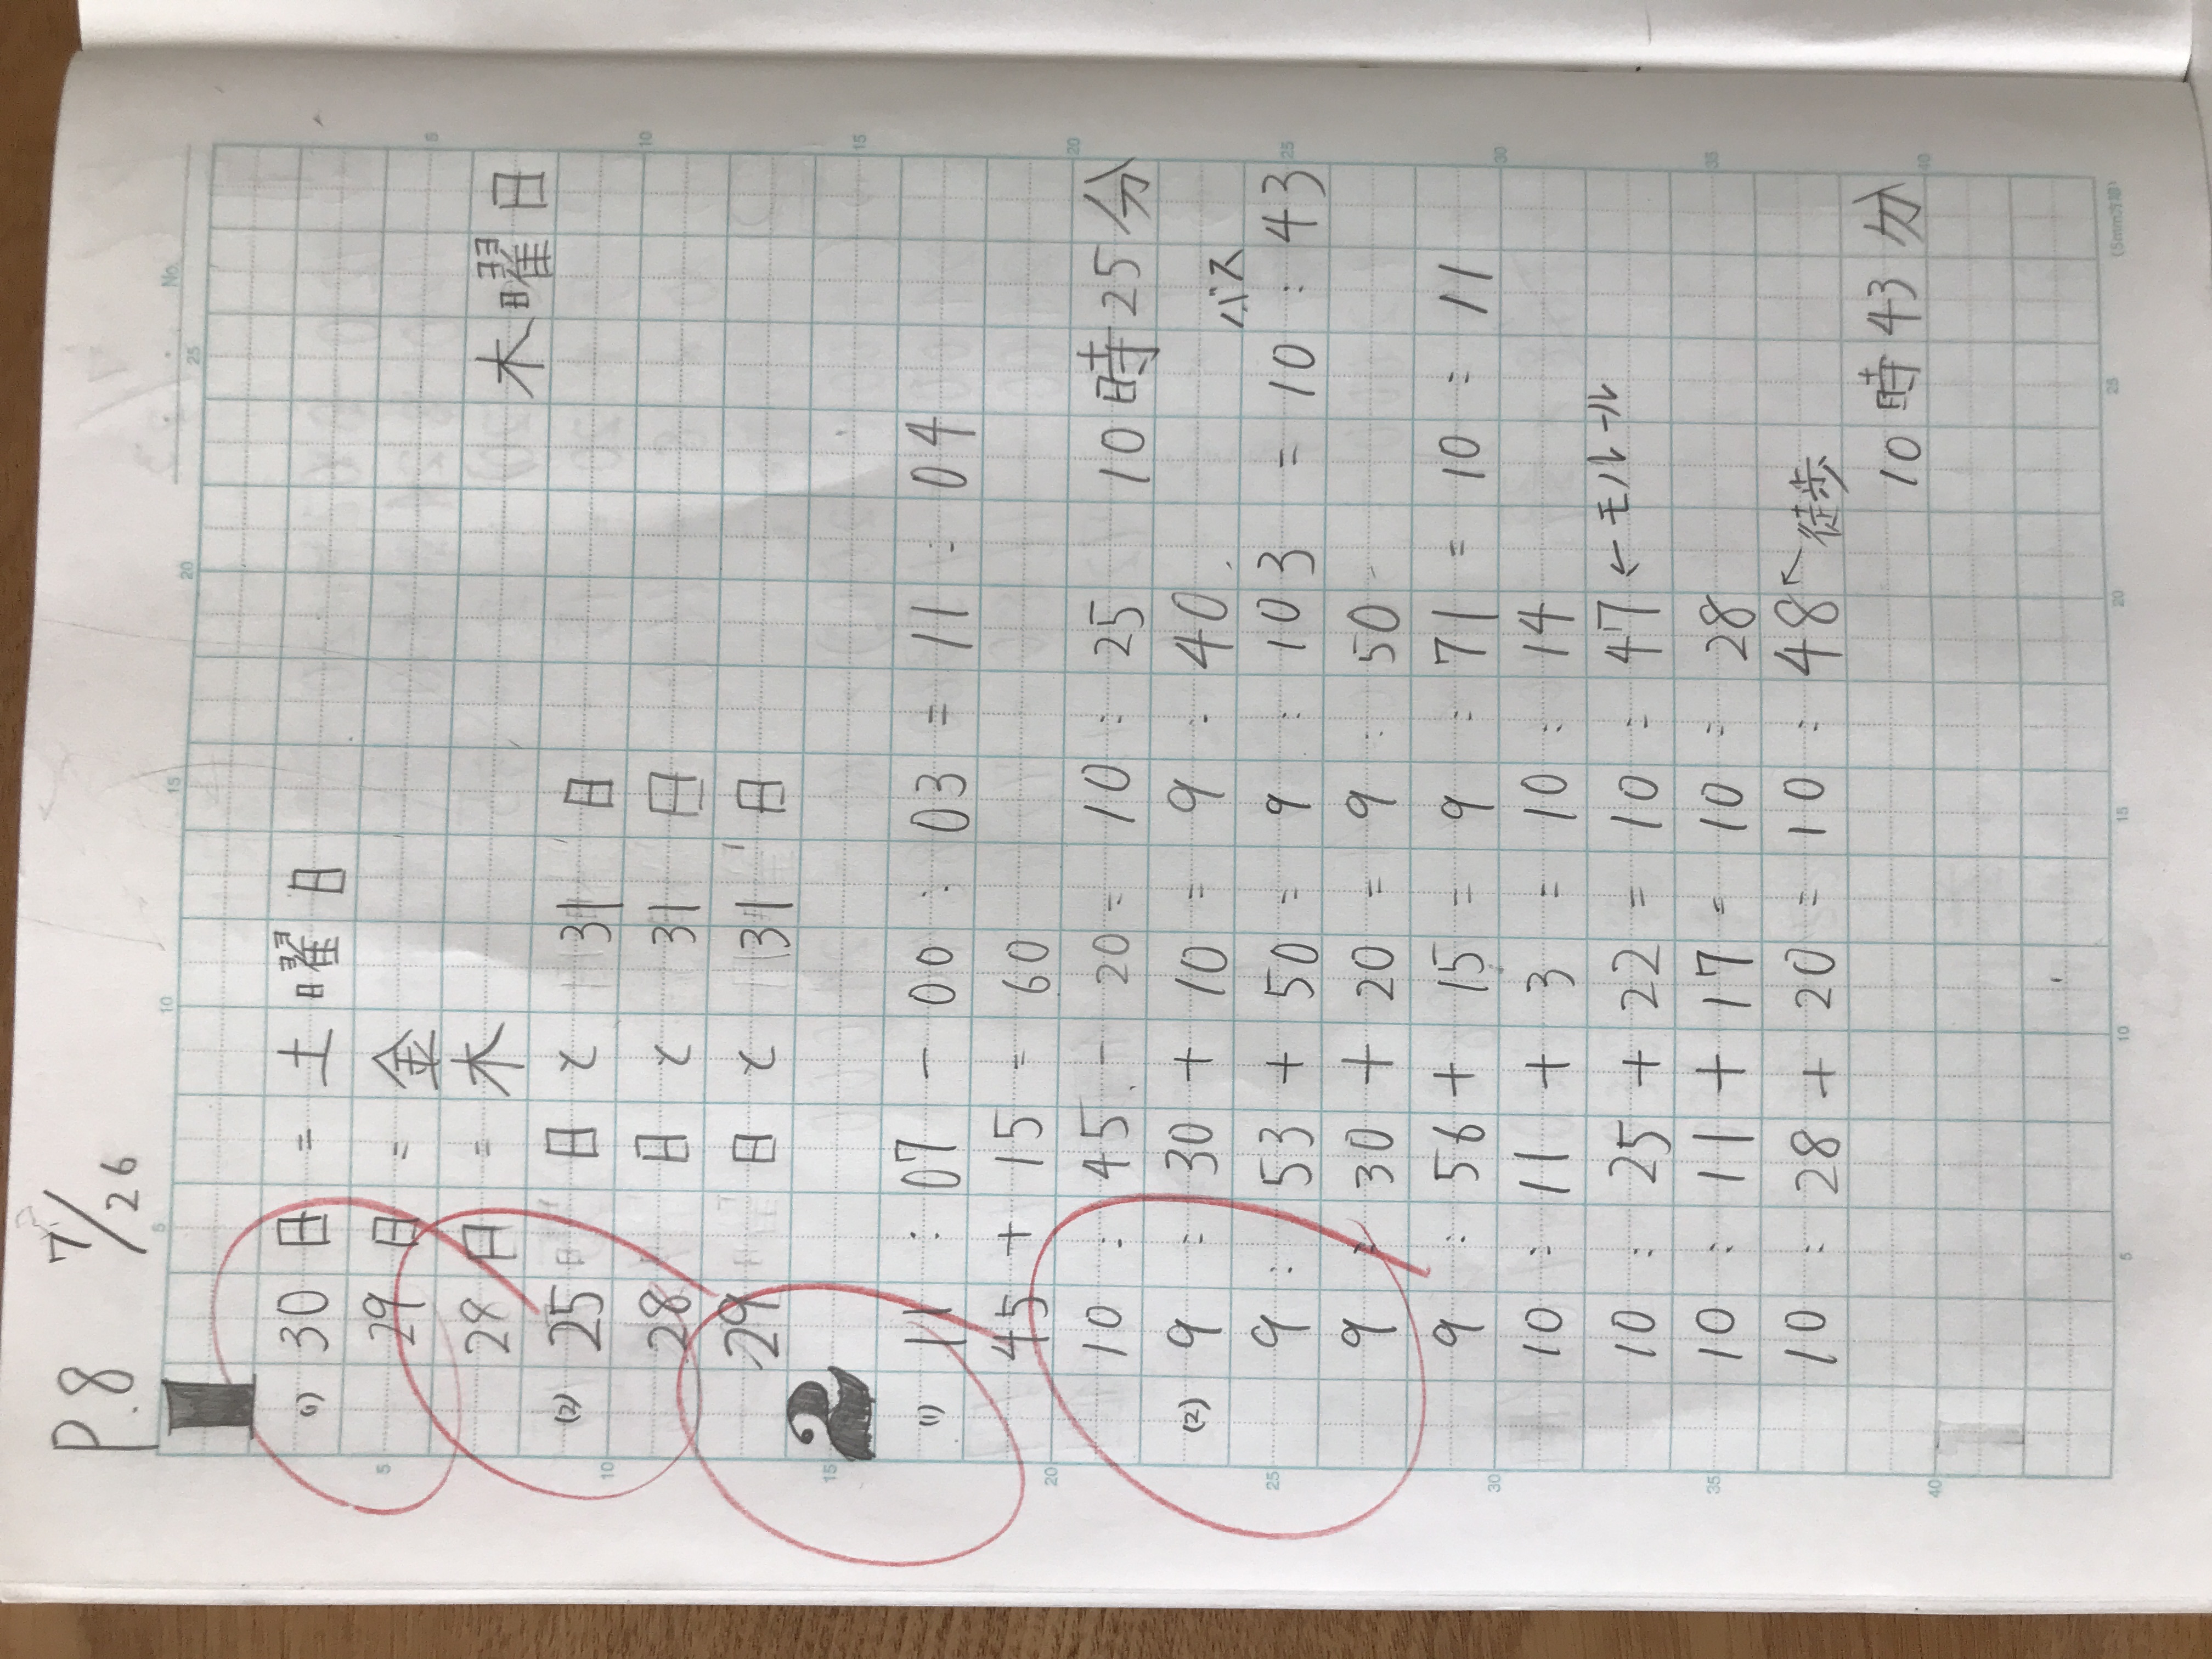 P.8 7/26
No.
1
(1) 30日 = 土曜日
29日 = 金
28日 = 木 木曜日
(2) 25日と31日
28日と31日
29日と31日
2
(1) 11:07 - 00:03 = 11:04
45 + 15 = 60
10:45 - 20 = 10:25 10時25分
(2) 9:30 + 10 = 9:40
バス
9:53 + 50 = 9:103 = 10:43
9:30 + 20 = 9:50
9:56 + 15 = 9:71 = 10:11
10:11 + 3 = 10:14
10:25 + 22 = 10:47 ←モノレール
10:11 + 17 = 10:28
10:28 + 20 = 10:48 ←徒歩
10時43分
(5mm方眼)